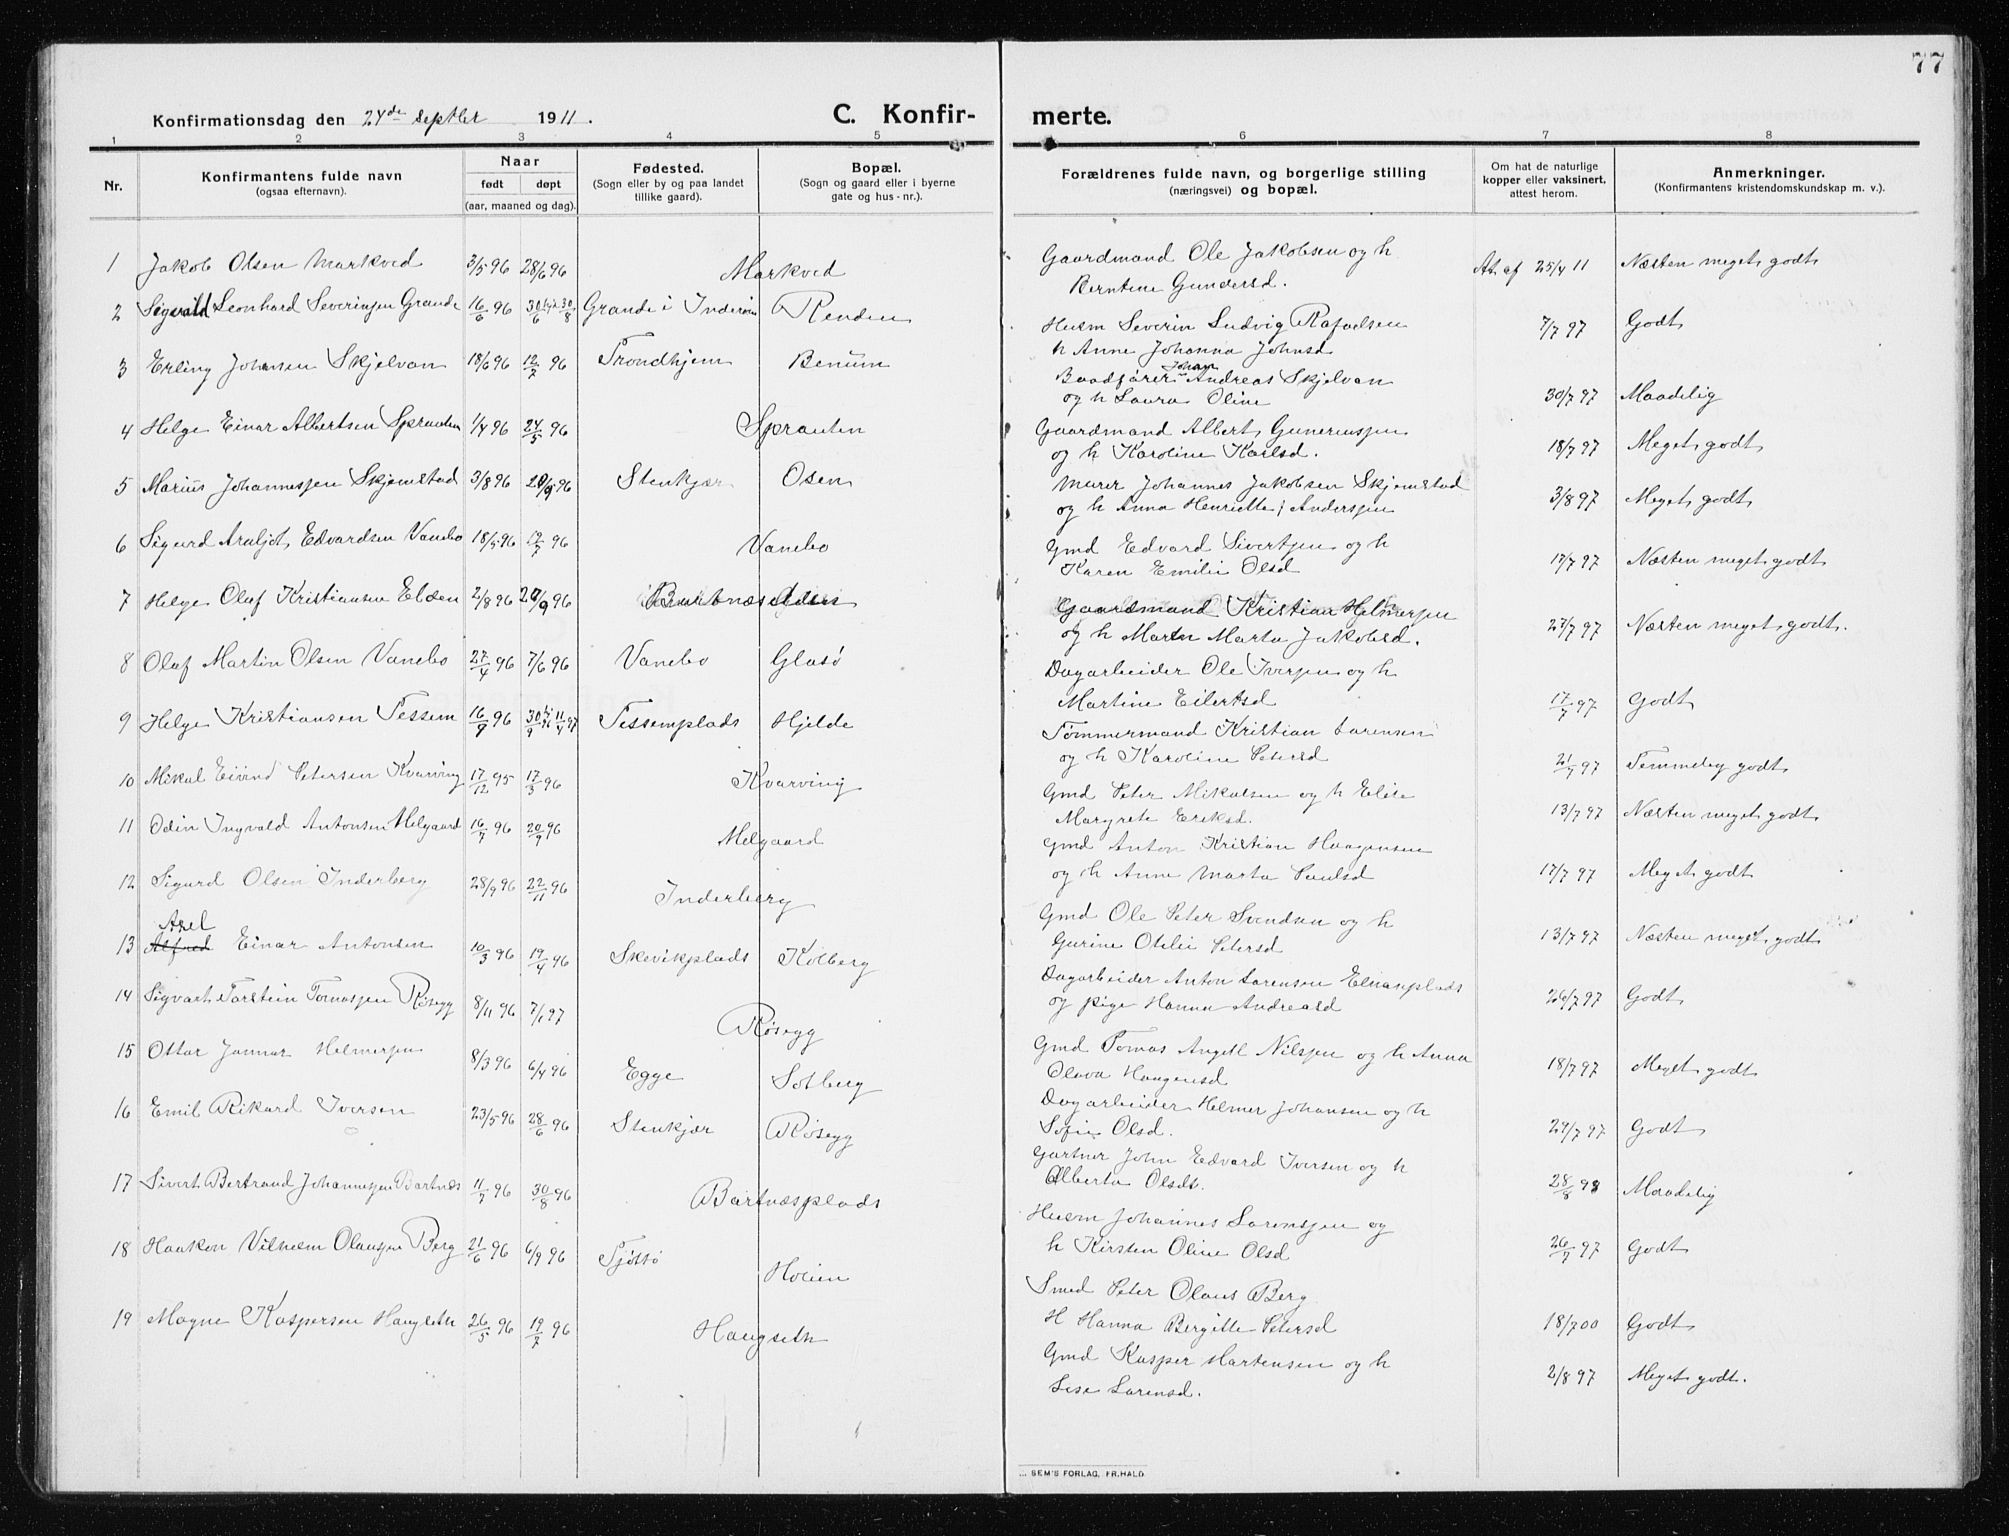 77
Konfirmationsdag den 24de septbr 1911.
C. Konfir-
merte.
1 2 3 4 5 6 7 8
Nr.
Konfirmantens fulde navn
(ogsaa efternavn).
Naar
født døpt
(aar, maaned og dag).
Fødested.
(Sogn eller by og paa landet
tillike gaard).
Bopæl.
(Sogn og gaard eller i byerne
gate og hus-nr.).
Forældrenes fulde navn, og borgerlige stilling
(næringsvei) og bopæl.
Om hat de naturlige
kopper eller vaksinert,
attest herom.
Anmerkninger.
(Konfirmantens kristendomskundskap m. v.).
1 Jakob Olsen Markved 3/5 96 28/6 96 Markved
Gaardmand Ole Jakobsen og h
Berntine Gundersd.
At. af 25/4 11 Næsten meget godt
2 Sigvald Leonhard Severinsen Grande 16/6 96 30/6 30/8 Grande i Inderøen Renden
Husm Severin Ludvig Rafaelsen
h Anne Johanna Johnsd
7/7 97 Godt
3 Erling Johansen Skjelvan 18/6 96 12/7 96 Trondhjem Benum
Baadfører Johan Andreas Skjelvan
og h Laura Oline
30/7 97 Maadelig
4 Helge Einar Albertsen Sprauten 1/4 96 24/5 96 Sprauten
Gaardmand Albert Guneriussen
og h Karoline Karlsd.
18/7 97 Meget godt
5 Marius Johannessen Skjemstad 3/8 96 20/9 96 Stenkjær Osen
Murer Johannes Jakobsen Skjemstad
og h Anna Henriette Anderssen
3/8 97 Meget godt
6 Sigurd Arnljot Edvardsen Vanebo 18/5 96 12/7 96 Vanebo
Gmd Edvard Sivertsen og h
Karen Emilie Olsd
17/7 97 Næsten meget godt
7 Helge Olaf Kristiansen Elden 2/8 96 20/9 96
Gaardmand Kristian Helmersen
og h Maren Marta Jakobsd.
27/7 97 Næsten meget godt.
8 Olaf Martin Olsen Vanebo 27/4 96 7/6 96 Vanebo Glasø
Dagarbeider Ole Iversen og h
Martine Eilertsd
17/7 97 Godt
9 Helge Kristiansen Tessem 16/9 96 30/9 96 11/4 97 Tessemplads Hjelde
Tømmermand Kristian Larensen
og h Karoline Petersd
21/7 97 Temmelig godt
10 Mikal Eivind Petersen Kvarving 17/12 95 17/3 96 Kvarving
Gmd Peter Mikalsen og h Elise
Margrete Eriksd.
13/7 97 Næsten meget godt
11 Odin Ingvald Antonsen Melgaard 16/7 96 20/9 96 Melgaard
Gmd Anton Kristian Haagensen
og h Anne Marta Paulsd
17/7 97 Meget godt
12 Sigurd Olsen Inderberg 28/9 96 22/11 96 Inderberg
Gmd Ole Peter Svendsen og h
Gurine Otelie Petersd
13/7 97 Næsten meget godt
Axel
13 Alfred Einar Antonsen 10/3 96 19/4 96 Skevikplads Kolberg
Dagarbeider Anton Larensen Elnanplads
og pige Hanna Andreasd
26/7 97 Godt
14 Sigvart Torstein Tomassen Røsegg 8/11 96 7/1 97 Røsegg
Gmd Tomas Angell Nilssen og h Anna
Olava Haagensd
18/7 97 Meget godt
15 Ottar Januar Helmersen 8/3 96 6/4 96 Egge Solberg
Dagarbeider Helmer Johansen og h
Sofie Olsd.
29/7 97 Godt
16 Emil Rikard Iversen 23/5 96 28/6 96 Stenkjær Røsegg
Gartner John Edvard Iversen og h
Alberta Olsdt.
28/8 98 Maadelig
17 Sivert Bertrand Johannessen Bartnæs 11/7 96 30/8 96 Bartnæsplads
Husm Johannes Larenssen og
h Kirsten Oline Olsd
26/7 97 Godt
18 Haakon Vilhelm Olaussen Berg 21/6 96 6/9 96 Tjøttø Hoeien
Smed Peter Olaus Berg
H Hanna Bergitte Petersd
18/7 00 Godt
19 Magne Kaspersen Haugseth 26/5 96 19/7 96 Haugseth
Gmd Kasper Martensen og h
Lise Larensd.
2/8 97 Meget godt.
SEM'S FORLAG, FR. HALD